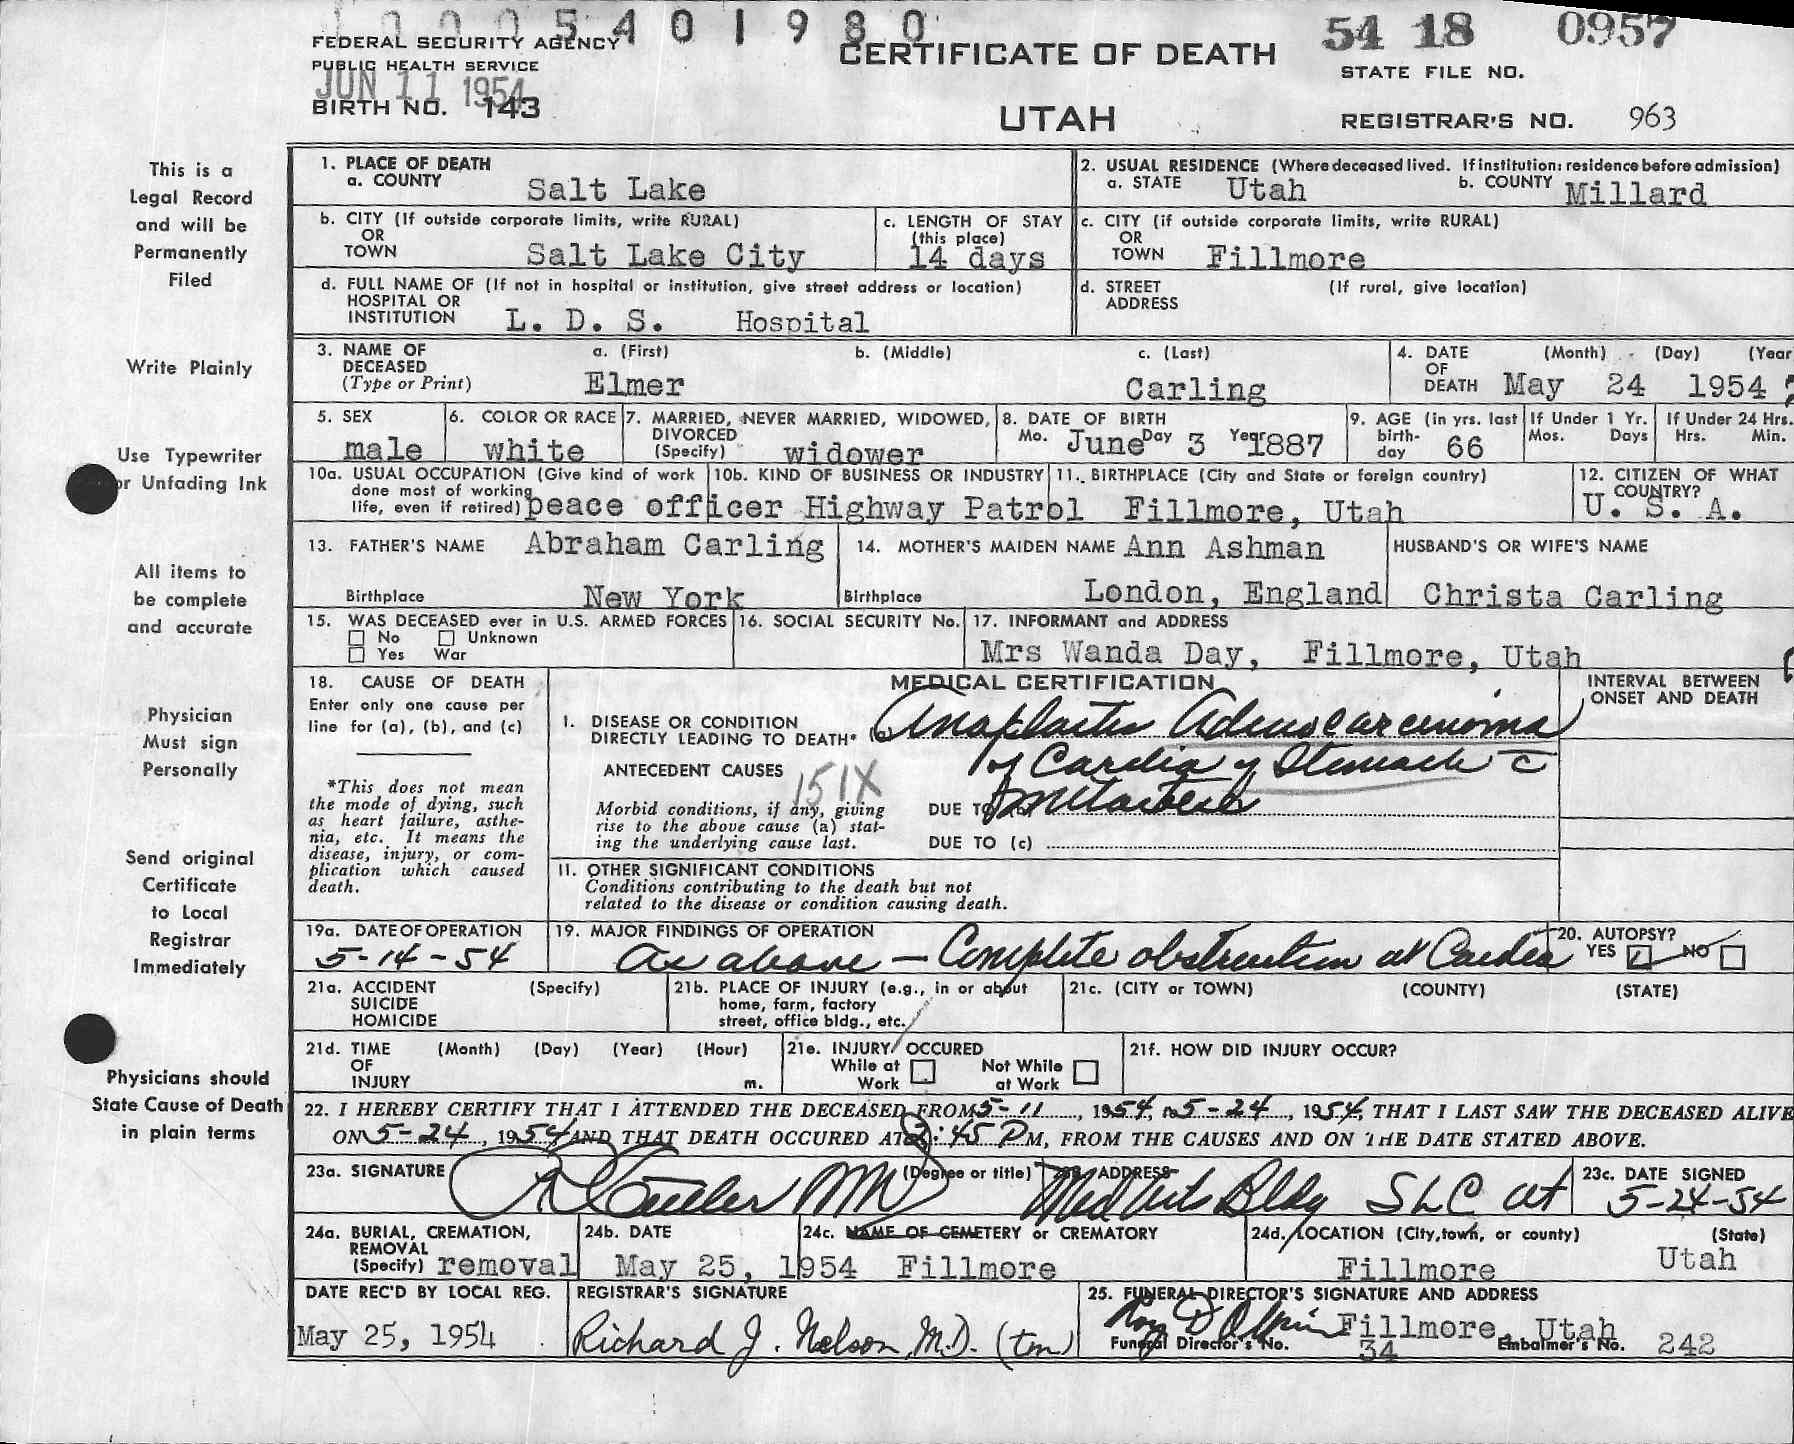 1 0 0 0 5 4 0 1 9 8 0
54 18 0957
FEDERAL SECURITY AGENCY
PUBLIC HEALTH SERVICE
JUN 11 1954
BIRTH NO. 143
CERTIFICATE OF DEATH
UTAH
STATE FILE NO.
REGISTRAR'S NO. 963
This is a
Legal Record
and will be
Permanently
Filed
Write Plainly
Use Typewriter
or Unfading Ink
All items to
be complete
and accurate
Physician
Must sign
Personally
Send original
Certificate
to Local
Registrar
Immediately
Physicians should
State Cause of Death
in plain terms
1. PLACE OF DEATH
a. COUNTY Salt Lake
2. USUAL RESIDENCE (Where deceased lived. If institution: residence before admission)
a. STATE Utah b. COUNTY Millard
b. CITY (If outside corporate limits, write RURAL)
OR
TOWN Salt Lake City
c. LENGTH OF STAY
(this place)
14 days
c. CITY (if outside corporate limits, write RURAL)
OR
TOWN Fillmore
d. FULL NAME OF (If not in hospital or institution, give street address or location)
HOSPITAL OR
INSTITUTION L. D. S. Hospital
d. STREET (If rural, give location)
ADDRESS
3. NAME OF a. (First) b. (Middle) c. (Last)
DECEASED
(Type or Print) Elmer Carling
4. DATE (Month) (Day) (Year
OF
DEATH May 24 1954
5. SEX
male
6. COLOR OR RACE
white
7. MARRIED, NEVER MARRIED, WIDOWED,
DIVORCED
(Specify) widower
8. DATE OF BIRTH
Mo. June Day 3 Year 1887
9. AGE (in yrs. last
birth-
day 66
If Under 1 Yr.
Mos. Days
If Under 24 Hrs.
Hrs. Min.
10a. USUAL OCCUPATION (Give kind of work
done most of working
life, even if retired) peace officer
10b. KIND OF BUSINESS OR INDUSTRY
Highway Patrol
11. BIRTHPLACE (City and State or foreign country)
Fillmore, Utah
12. CITIZEN OF WHAT
COUNTRY?
U. S. A.
13. FATHER'S NAME Abraham Carling
Birthplace New York
14. MOTHER'S MAIDEN NAME Ann Ashman
Birthplace London, England
HUSBAND'S OR WIFE'S NAME
Christa Carling
15. WAS DECEASED ever in U.S. ARMED FORCES
No Unknown
Yes War
16. SOCIAL SECURITY No.
17. INFORMANT and ADDRESS
Mrs Wanda Day, Fillmore, Utah
18. CAUSE OF DEATH
Enter only one cause per
line for (a), (b), and (c)
*This does not mean
the mode of dying, such
as heart failure, asthe-
nia, etc. It means the
disease, injury, or com-
plication which caused
death.
MEDICAL CERTIFICATION
INTERVAL BETWEEN
ONSET AND DEATH
I. DISEASE OR CONDITION
DIRECTLY LEADING TO DEATH* (a) Anaplastic Adenocarcinoma
of Cardia of Stomach c̄
ANTECEDENT CAUSES 151X
Morbid conditions, if any, giving
rise to the above cause (a) stat-
ing the underlying cause last.
DUE TO metastases
DUE TO (c)
11. OTHER SIGNIFICANT CONDITIONS
Conditions contributing to the death but not
related to the disease or condition causing death.
19a. DATE OF OPERATION
5-14-54
19. MAJOR FINDINGS OF OPERATION
As above – Complete obstruction at Cardia
20. AUTOPSY?
YES NO
21a. ACCIDENT (Specify)
SUICIDE
HOMICIDE
21b. PLACE OF INJURY (e.g., in or about
home, farm, factory
street, office bldg., etc.
21c. (CITY or TOWN) (COUNTY) (STATE)
21d. TIME (Month) (Day) (Year) (Hour)
OF
INJURY m.
21e. INJURY OCCURED
While at Work Not While at Work
21f. HOW DID INJURY OCCUR?
22. I HEREBY CERTIFY THAT I ATTENDED THE DECEASED FROM 5-11, 1954, to 5-24, 1954, THAT I LAST SAW THE DECEASED ALIVE
ON 5-24, 1954 AND THAT DEATH OCCURED AT 2:45 PM, FROM THE CAUSES AND ON THE DATE STATED ABOVE.
23a. SIGNATURE (Degree or title)
MD
23b. ADDRESS
Med Arts Bldg SLC Ut
23c. DATE SIGNED
5-24-54
24a. BURIAL, CREMATION,
REMOVAL
(Specify) removal
24b. DATE
May 25, 1954
24c. NAME OF CEMETERY or CREMATORY
Fillmore
24d. LOCATION (City, town, or county) (State)
Fillmore Utah
DATE REC'D BY LOCAL REG.
May 25, 1954
REGISTRAR'S SIGNATURE
Richard J. Nelson, M.D. (tm)
25. FUNERAL DIRECTOR'S SIGNATURE AND ADDRESS
Fillmore, Utah
Funeral Director's No. 34 Embalmer's No. 242